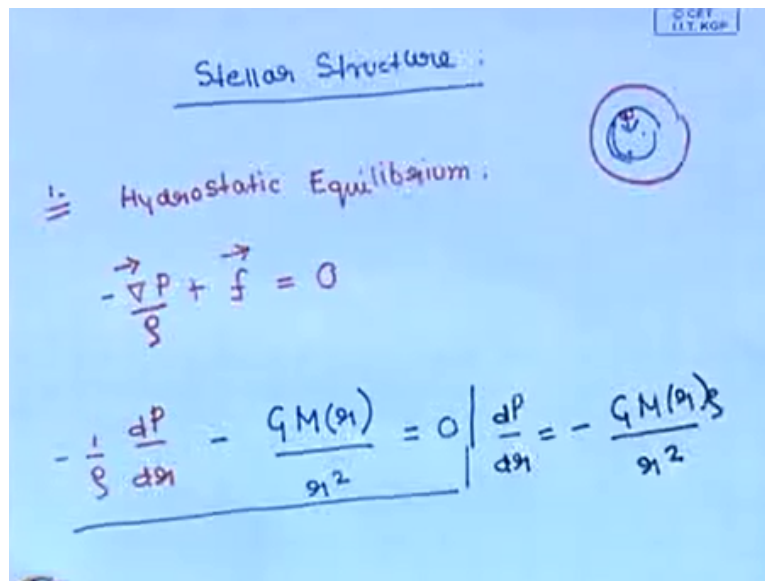 © CET
I.I.T. KGP
Stellar Structure :
1. Hydrostatic Equilibrium :
-∇⃗P/ρ + f⃗ = 0
-1/ρ dP/dr - GM(r)/r² = 0 | dP/dr = - GM(r)ρ/r²